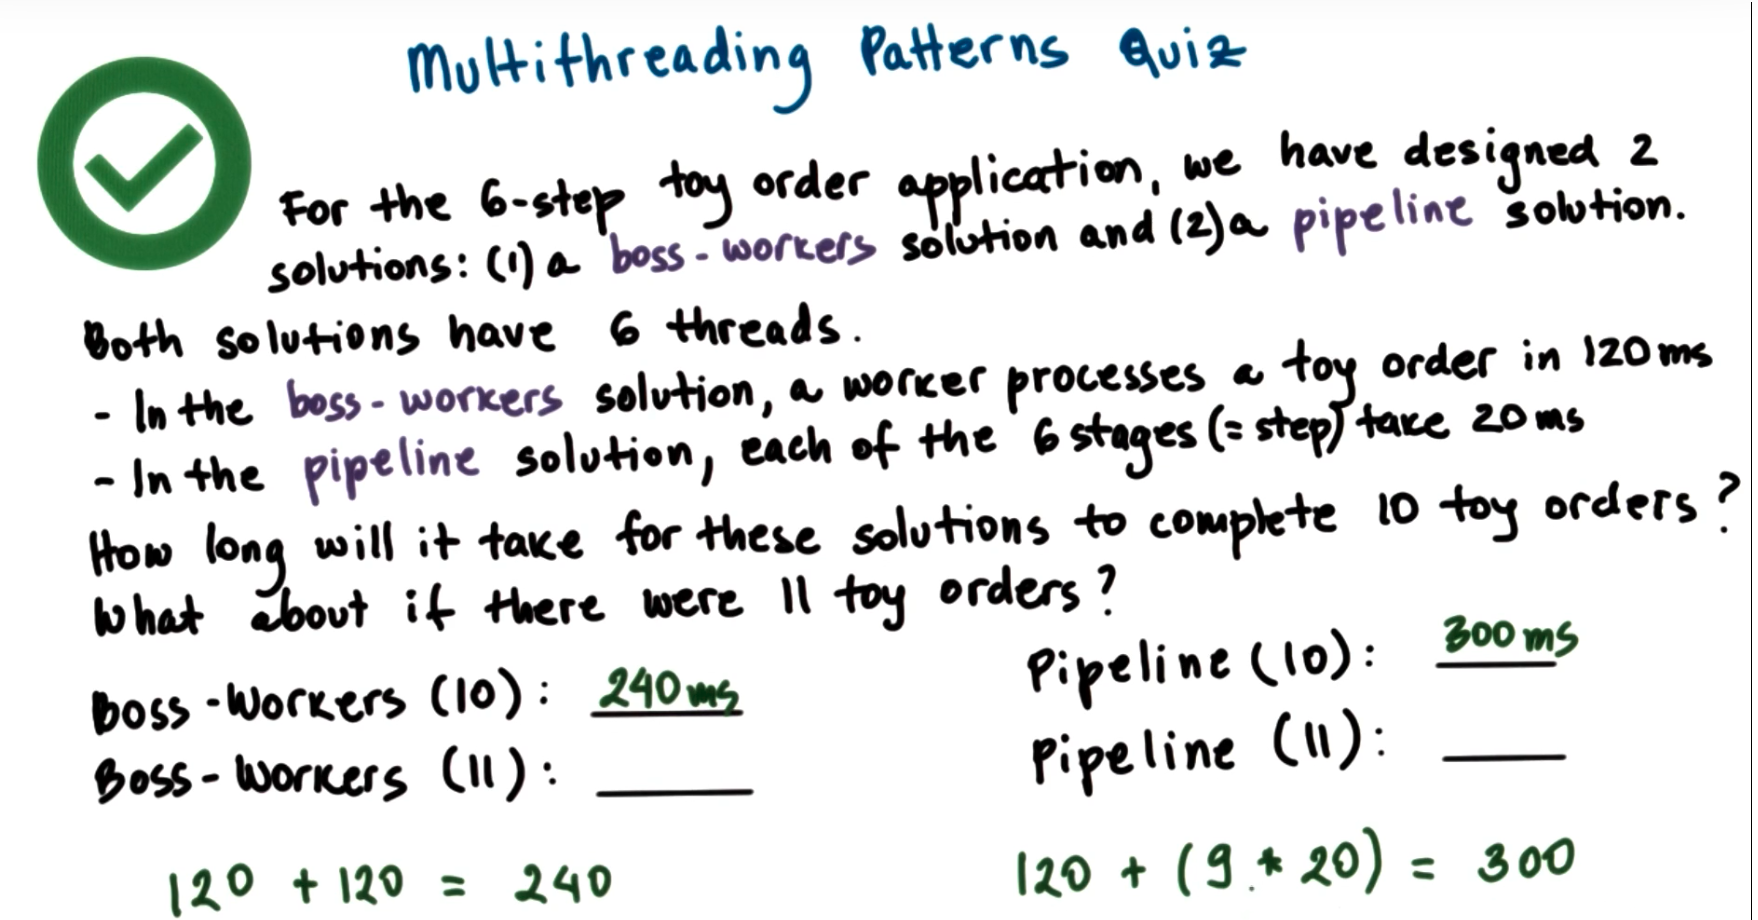 Multithreading Patterns Quiz
For the 6-step toy order application, we have designed 2
solutions: (1) a boss-workers solution and (2) a pipeline solution.
Both solutions have 6 threads.
- In the boss-workers solution, a worker processes a toy order in 120ms
- In the pipeline solution, each of the 6 stages (= step) take 20ms
How long will it take for these solutions to complete 10 toy orders?
What about if there were 11 toy orders?
Boss-Workers (10): 240ms
Pipeline (10): 300ms
Boss-Workers (11):
Pipeline (11):
120 + 120 = 240
120 + (9 * 20) = 300